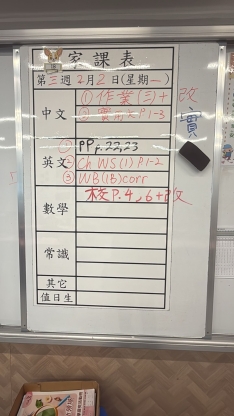 家課表
第三週2月2日(星期一)
中文
①作業(三)+改
②實用文P1-3
實
英文
① PP p.22,23
② Ch WS(1) P1-2
③ WB(1B)corr
數學
校P.4,6+改
常識
其它
值日生